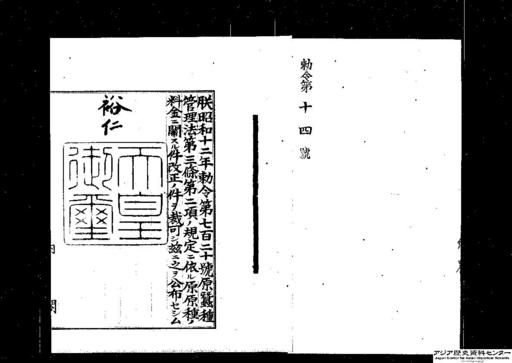 勅令第十四號
朕昭和十二年勅令第七百二十號原蠶種
管理法第三條第二項ノ規定ニ依ル原原種ノ
料金ニ關スル件改正ノ件ヲ裁可シ玆ニ之ヲ公布セシム
裕仁
天皇
御璽
内閣
アジア歴史資料センター
Japan Center for Asian Historical Records